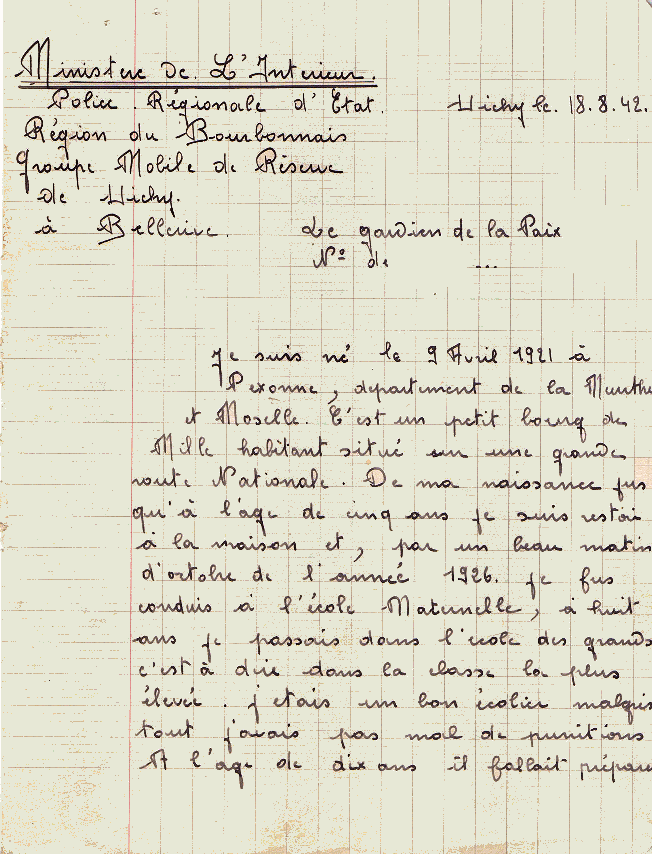 Ministere De L'Interieur.
Police Régionale d'Etat. Vichy le. 18.8.42.
Région du Bourbonnais
Groupe Mobile de Réserve
de Vichy.
à Bellerive. Le gardien de la Paix
N° de ...
Je suis né le 9 Avril 1921 à
Pexonne, departement de la Meurthe
et Moselle. C'est un petit bourg de
Mille habitant situé sur une grande
route Nationale. De ma naissance jus
qu'à l'âge de cinq ans je suis restai
à la maison et, par un beau matin
d'octobre de l'année 1926. je fus
conduis à l'école Maternelle, à huit
ans je passais dans l'école des grands
c'est à dire dans la classe la plus
élevée. j'etais un bon écolier malgrés
tout j'avais pas mal de punitions
A l'âge de dix ans il fallait prépare